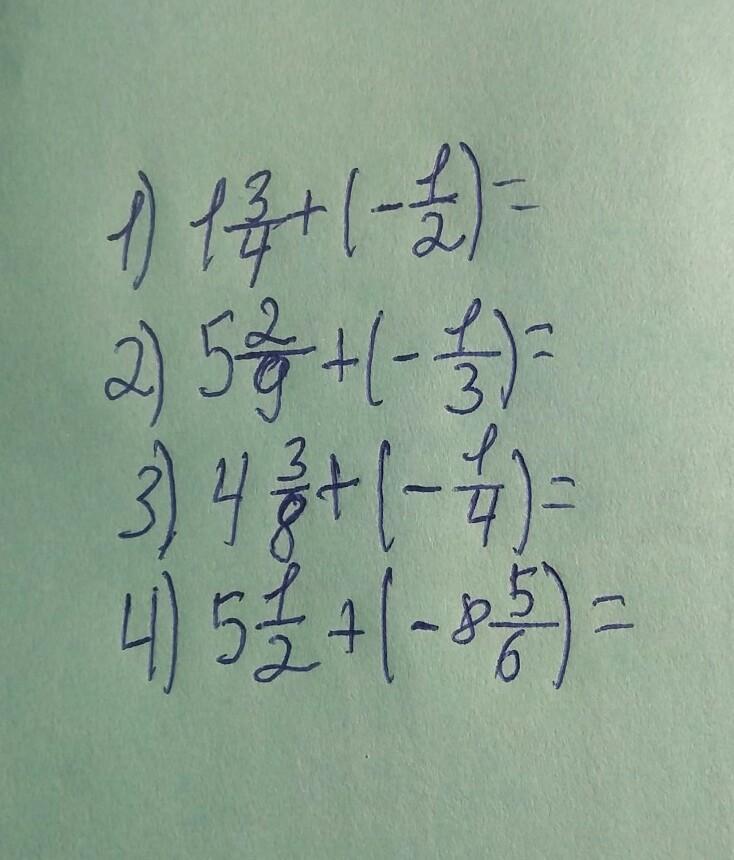 1) 1 3/4 + (- 1/2) =
2) 5 2/9 + (- 1/3) =
3) 4 3/8 + (- 1/4) =
4) 5 1/2 + (- 8 5/6) =